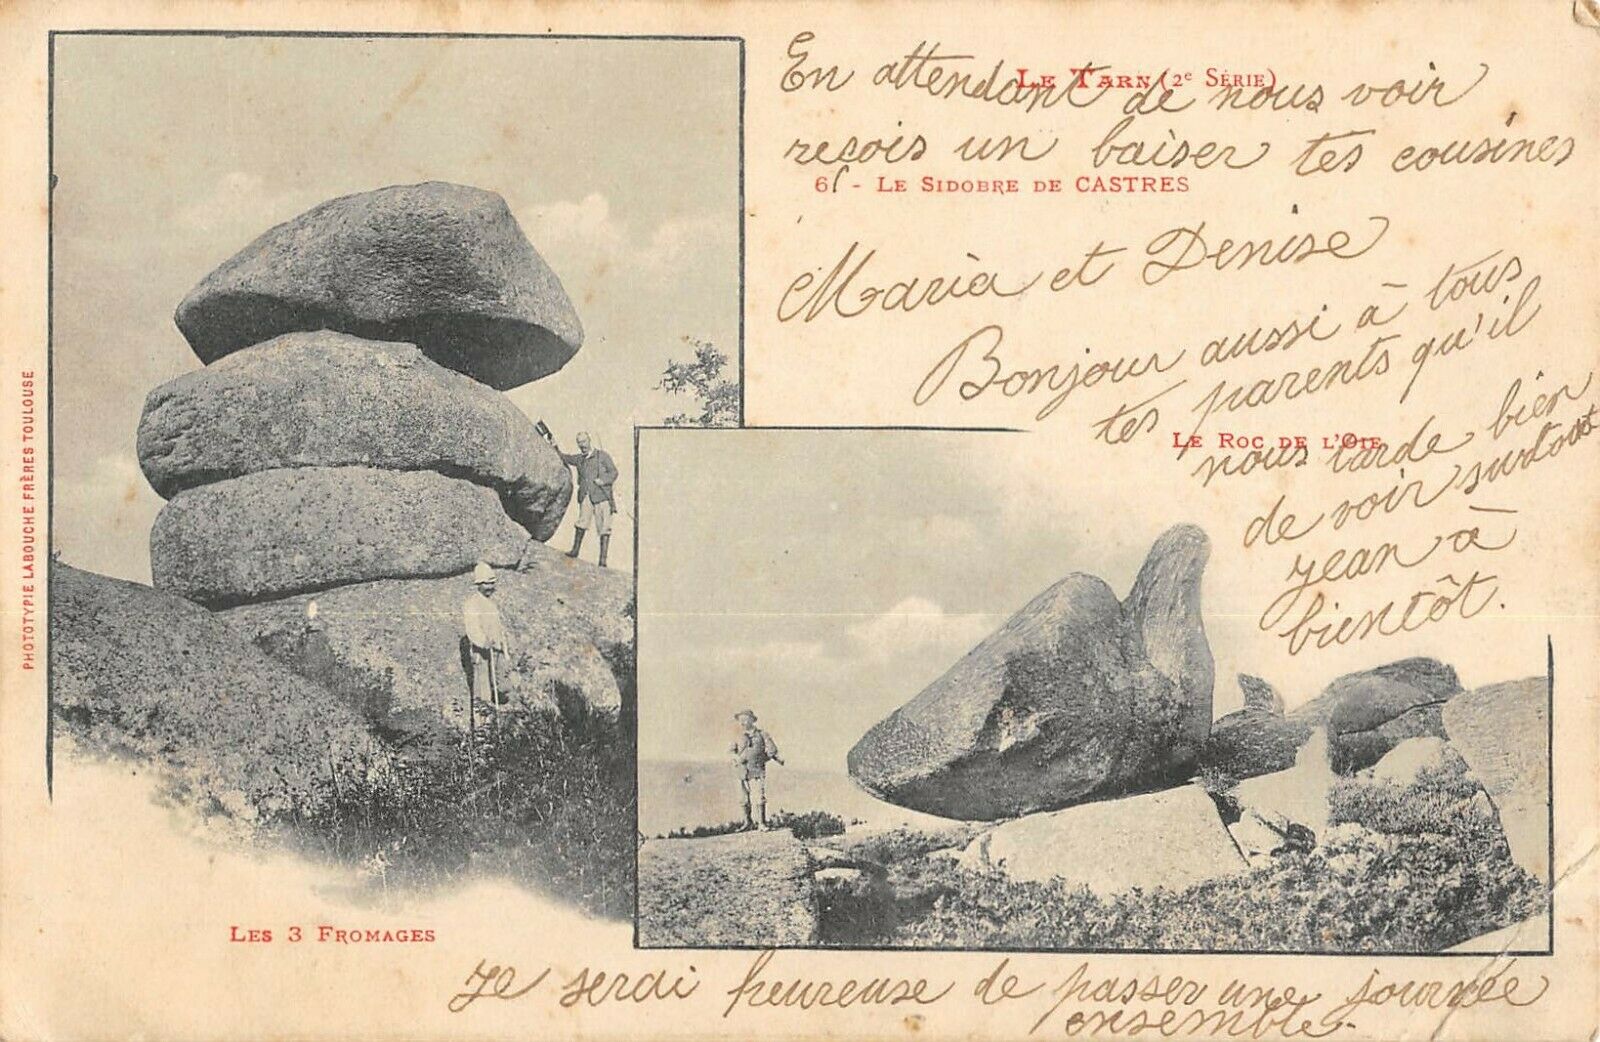 LE TARN (2e SÉRIE)
En attendant de nous voir
reçois un baiser tes cousines
6 - LE SIDOBRE DE CASTRES
Maria et Denise
Bonjour aussi à tous
tes parents qu'il
LE ROC DE L'OIE
nous tarde bien
de voir surtout
Jean à
bientôt.
PHOTOTYPIE LABOUCHE FRÈRES TOULOUSE
LES 3 FROMAGES
Je serai heureuse de passer une journée
ensemble.